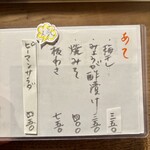 あて
梅水しょ 三五〇
みょうが酢漬け 三五〇
焼みそ 四〇〇
板わさ 七五〇
ピーマンサラダ 四五〇